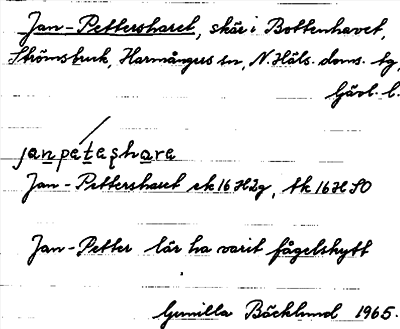 Jan-Pettersharet, skär i Bottenhavet,
Strömsbruk, Harmångers sn, N. Häls. doms. tg,
Gävl. l.
janpeteşhare
Jan-Pettersharet ek 16H2g, tk 16H SO
Jan-Petter lär ha varit fågelskytt
Gunilla Bäcklund 1965.